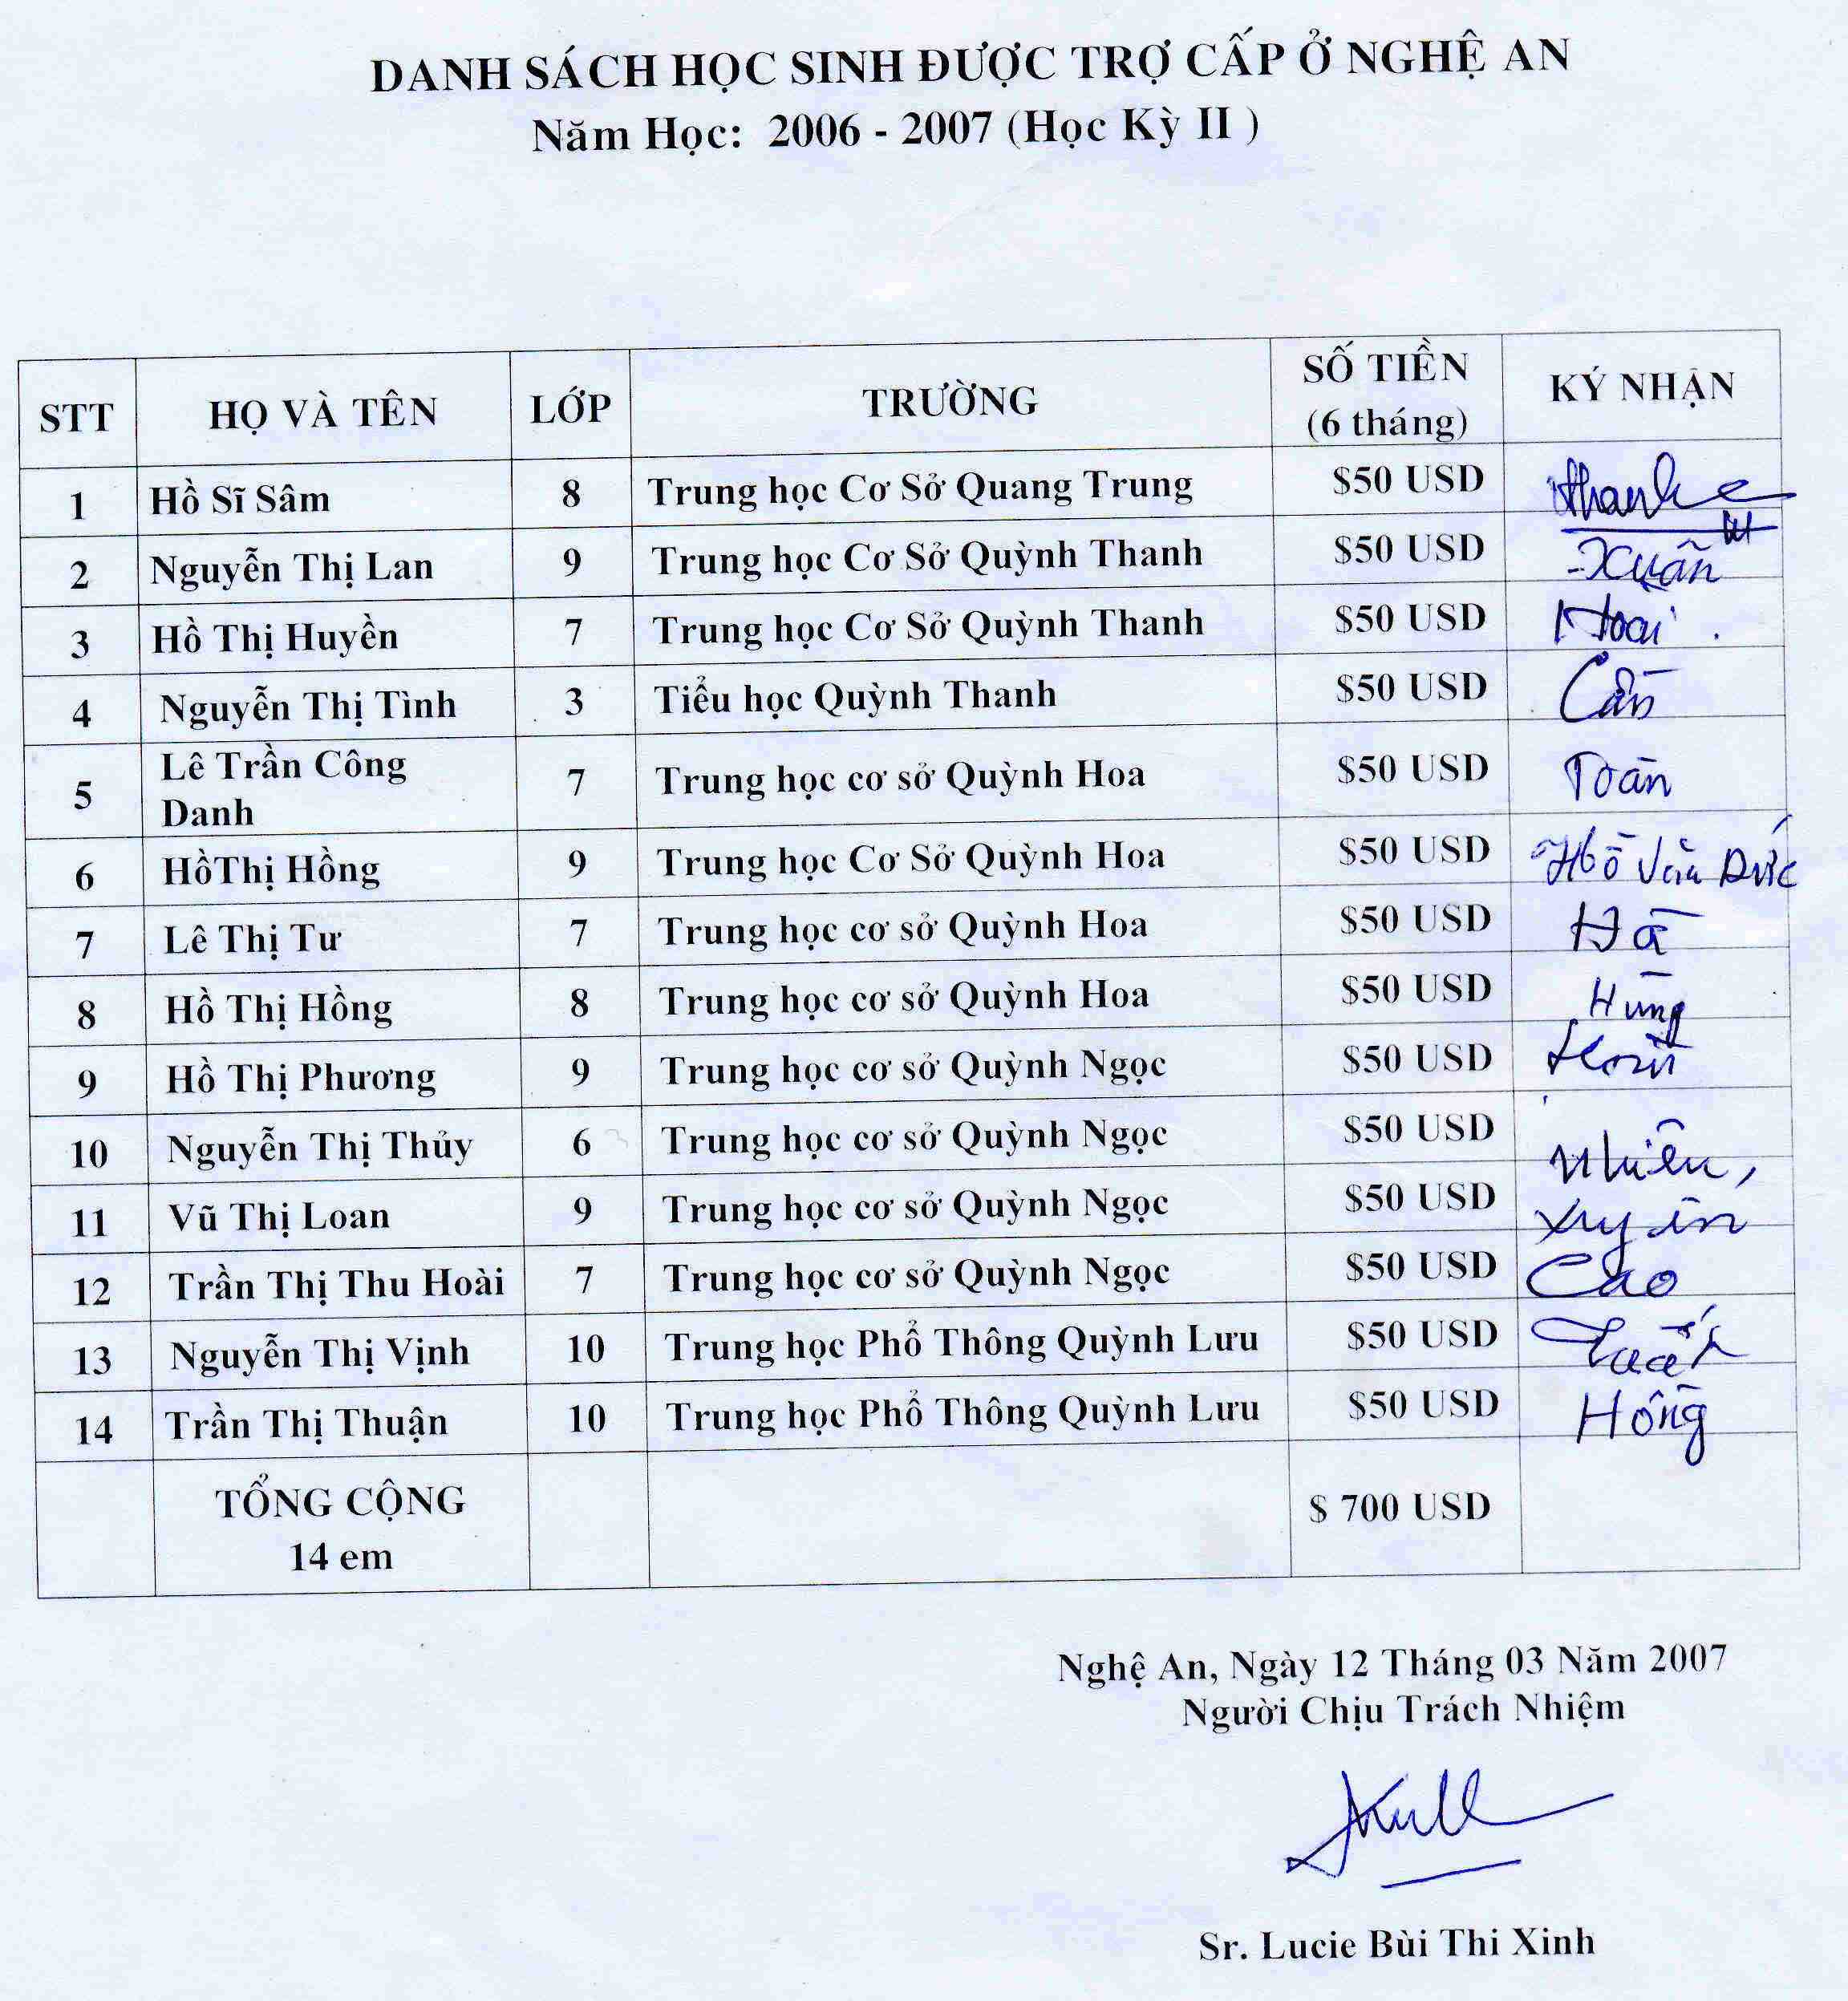 DANH SÁCH HỌC SINH ĐƯỢC TRỢ CẤP Ở NGHỆ AN
Năm Học: 2006 - 2007 (Học Kỳ II )
STT HỌ VÀ TÊN LỚP TRƯỜNG SỐ TIỀN (6 tháng) KÝ NHẬN
1 Hồ Sĩ Sâm 8 Trung học Cơ Sở Quang Trung $50 USD
2 Nguyễn Thị Lan 9 Trung học Cơ Sở Quỳnh Thanh $50 USD Xuân
3 Hồ Thị Huyền 7 Trung học Cơ Sở Quỳnh Thanh $50 USD Hoai
4 Nguyễn Thị Tình 3 Tiểu học Quỳnh Thanh $50 USD
5 Lê Trần Công Danh 7 Trung học cơ sở Quỳnh Hoa $50 USD Toàn
6 HồThị Hồng 9 Trung học Cơ Sở Quỳnh Hoa $50 USD Hồ Văn Đức
7 Lê Thị Tư 7 Trung học cơ sở Quỳnh Hoa $50 USD Hà
8 Hồ Thị Hồng 8 Trung học cơ sở Quỳnh Hoa $50 USD Hùng
9 Hồ Thị Phương 9 Trung học cơ sở Quỳnh Ngọc $50 USD
10 Nguyễn Thị Thủy 6 Trung học cơ sở Quỳnh Ngọc $50 USD Nhiên,
11 Vũ Thị Loan 9 Trung học cơ sở Quỳnh Ngọc $50 USD
12 Trần Thị Thu Hoài 7 Trung học cơ sở Quỳnh Ngọc $50 USD Cao
13 Nguyễn Thị Vịnh 10 Trung học Phổ Thông Quỳnh Lưu $50 USD
14 Trần Thị Thuận 10 Trung học Phổ Thông Quỳnh Lưu $50 USD Hồng
TỔNG CỘNG 14 em $ 700 USD
Nghệ An, Ngày 12 Tháng 03 Năm 2007
Người Chịu Trách Nhiệm
Sr. Lucie Bùi Thi Xinh